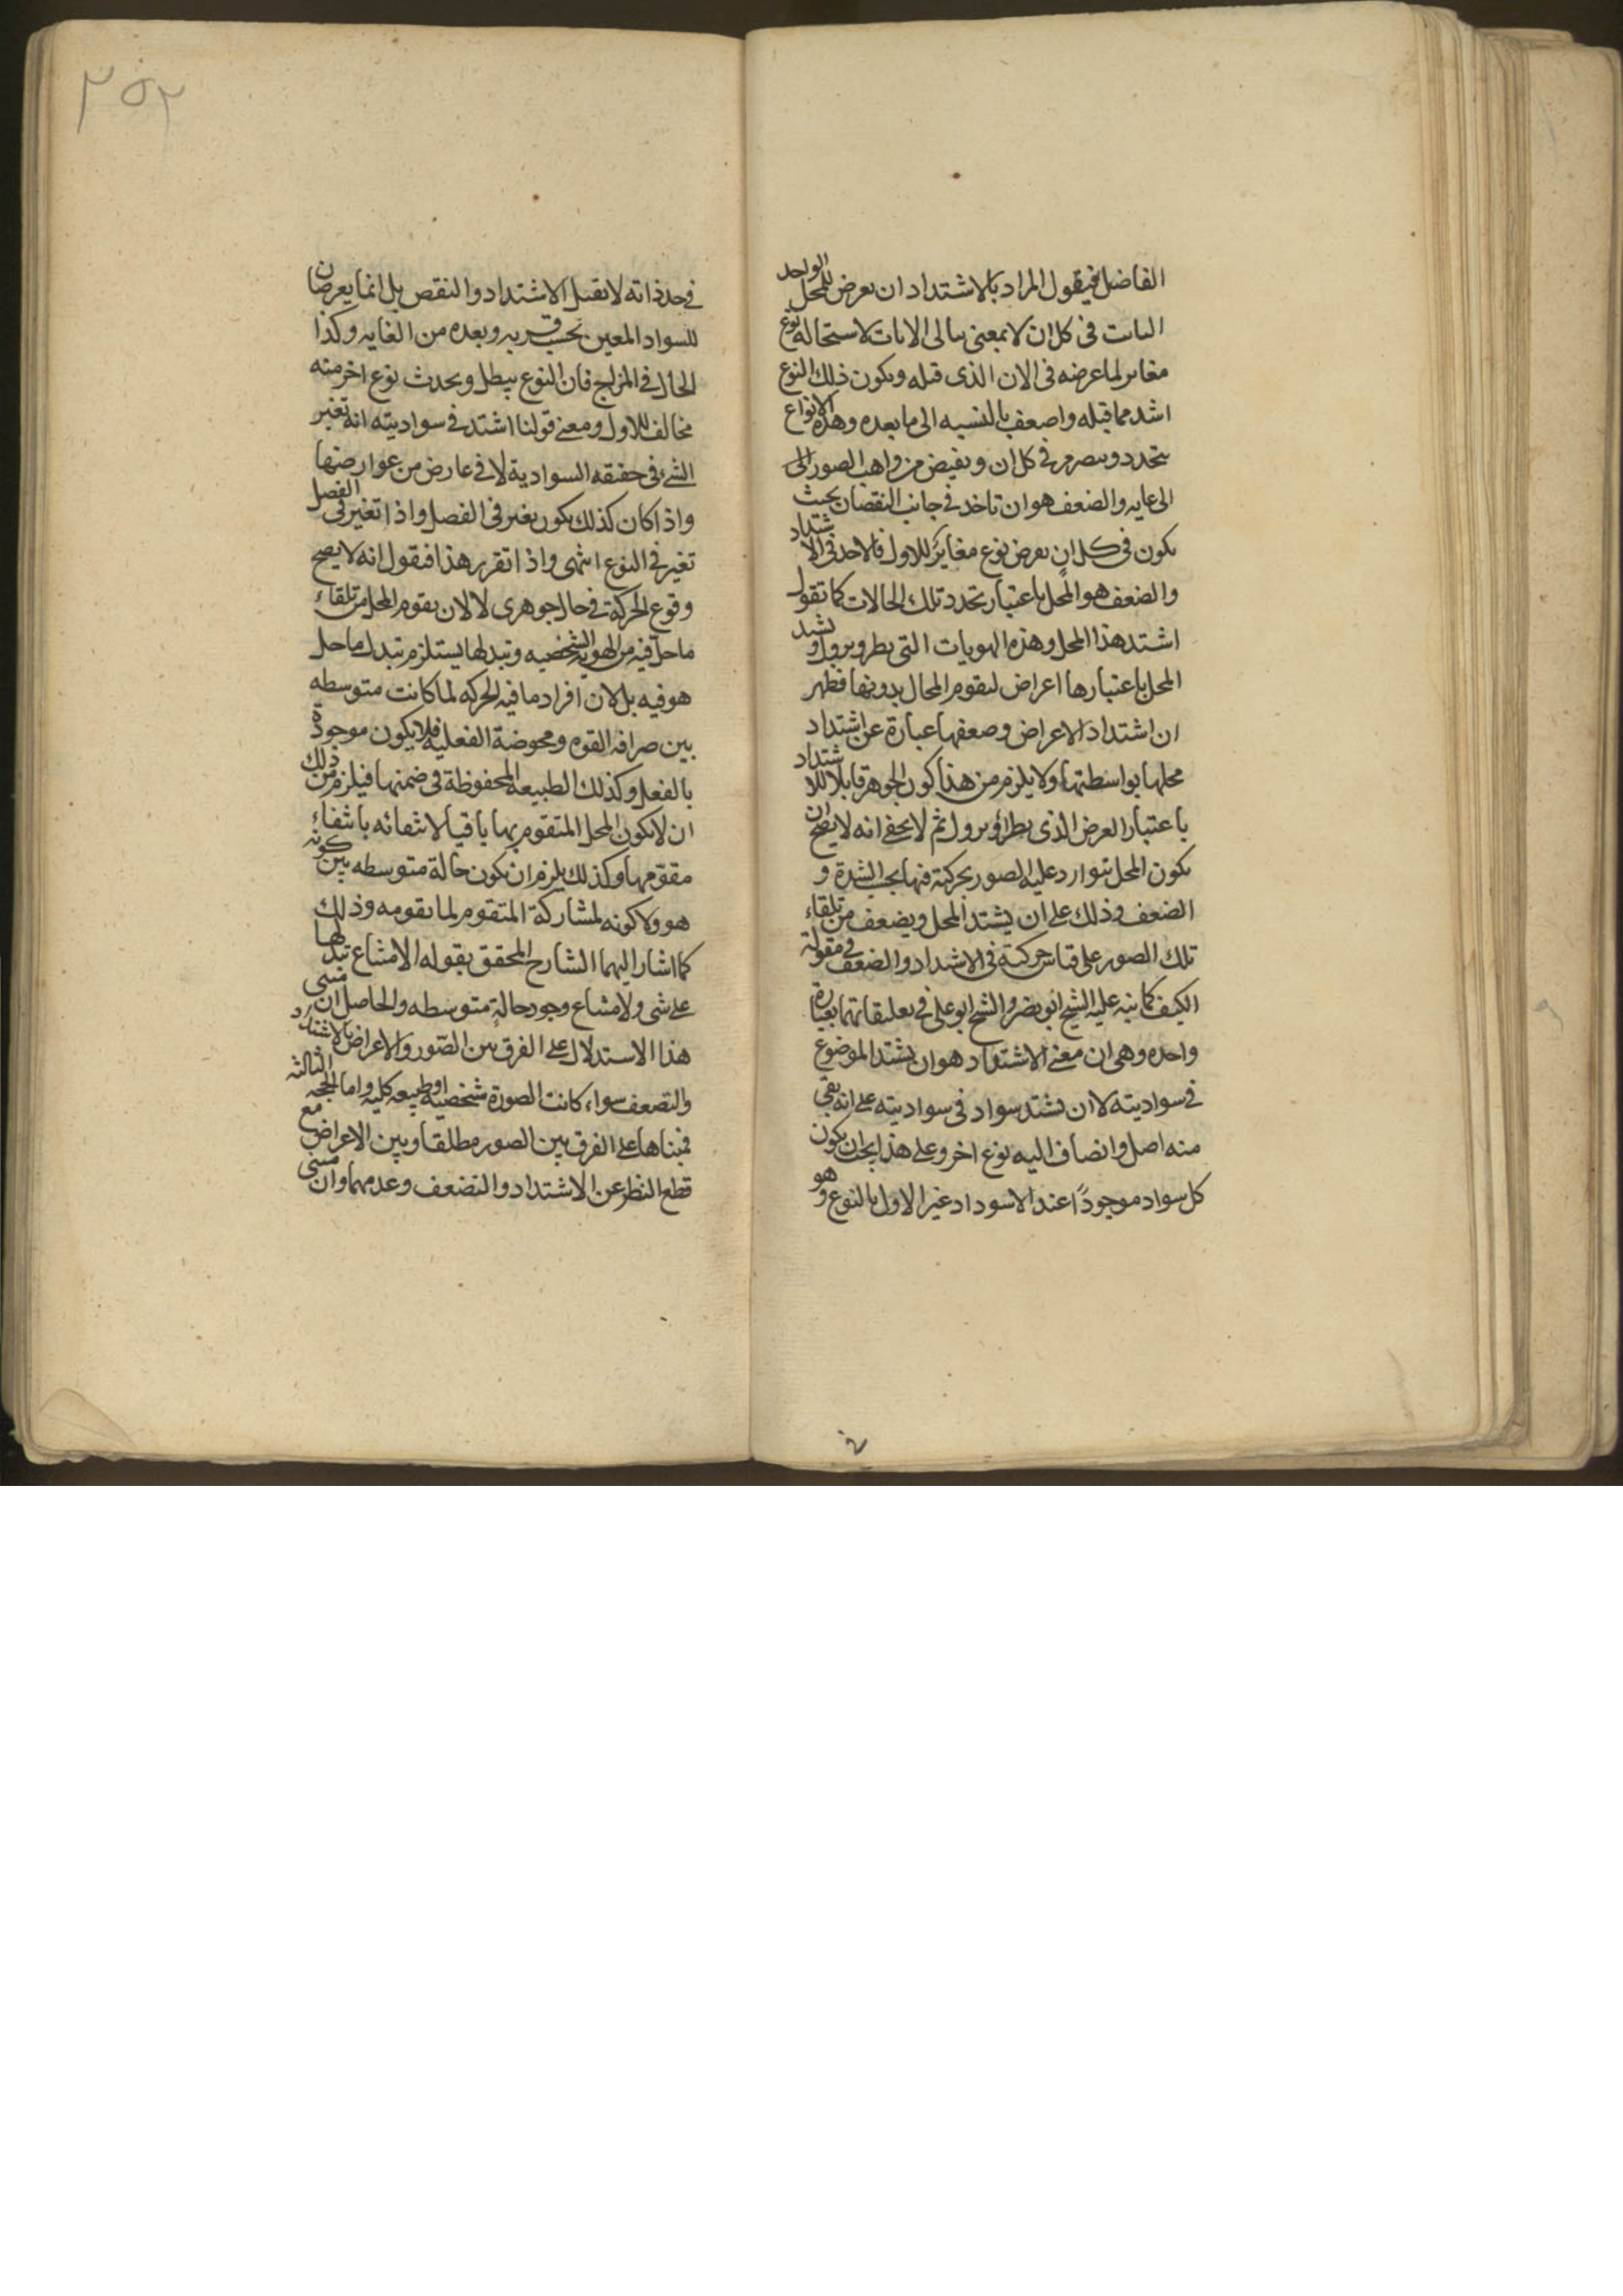 الفاضل فيقول المراد بالاشتداد ان يعرض للمحل الواحد
الثابت فى كل ان لا بمعنى تتالى الانات لاستحالته نوع
مغاير لما عرضه فى الان الذى قبله ويكون ذلك النوع
اشد مما قبله واضعف بالنسبه الى ما بعده وهذه الانواع
يتجدد ويتصرم فى كل ان ويفيض من واهب الصور الى
الى غايه والضعف هو ان تاخذ فى جانب النقصان بحيث
يكون فى كل ان يعرض نوع مغاير للاول فالاخذ فى الاشتداد
والضعف هو المحل باعتبار تجدد تلك الحالات كما تقول
اشتد هذا المحل وهذه الهويات التى يطرو يزول ويشتد
المحل باعتبارها اعراض لتقوم المحال بدونها فظهر
ان اشتداد الاعراض وضعفها عبارة عن اشتداد
محلها بواسطتها ولا يلزم من هذا كون الجوهر قابلا للاشتداد
باعتبار العرض الذى يطرؤ يزول ثم لا يخفى انه لا يصح ان
يكون المحل يتوارد عليه الصور بحركته فيها بحسب الشدة و
الضعف وذلك على ان يشتد المحل ويضعف من تلقاء
تلك الصور على قياس حركته فى الاشتداد والضعف فى مقولة
الكيف كما نبه عليه الشيخ ابو نصر والشيخ ابو على فى تعليقاتهما بعبارة
واحده وهى ان معنى الاشتداد هو ان يشتد الموضوع
فى سواديته لا ان يشتد سواد فى سواديته على انه بقى
منه اصل وانضاف اليه نوع اخر وعلى هذا يجب ان يكون
كل سواد موجودًا عند الاسوداد غير الاول بالنوع وهو
٢٥٢
فى حد ذاته لا تقبل الاشتداد والنقص بل انما يعرضان
للسواد المعين بحسب قربه وبعده من الغايه وكذا
الحال فى المزاج فان النوع يبطل ويحدث نوع اخر منه
مخالف للاول ومعنى قولنا اشتد فى سواديته انه تغير
الشئ فى حقيقه السوادية لا فى عارض من عوارضها
واذا كان كذلك يكون تغير فى الفصل واذا تغير فى الفصل
تغير فى النوع انتهى واذا تقرر هذا فنقول انه لا يصح
وقوع الحركة فى حال جوهرى لا لان يقوم المحل من تلقاء
ما حل فيه من الهويه الشخصيه وتبدلها يستلزم تبدل ما حل
هو فيه بل لان افراد ما فيه الحركه لما كانت متوسطه
بين صرافه القوه ومحوضة الفعليه فلا يكون موجودة
بالفعل وكذلك الطبيعه المحفوظة فى ضمنها فيلزم من ذلك
ان لا يكون المحل المتقوم بها باقيا لانتفائه بانتفاء
مقومها وكذلك يلزم ان يكون حالة متوسطه بين كونه
هو ولا كونه لمشاركة المتقوم لما يقومه وذلك
كما اشار اليهما الشارح المحقق بقوله الامتناع تبدلها
على شى ولامتناع وجود حالةٍ متوسطه والحاصل ان مبنى
هذا الاستدلال على الفرق بين الصّور والاعراض بالاشتداد
والتضعف سواء كانت الصورة شخصيه او طبيعه كليه واما الحجه الثالثه
فمبناها على الفرق بين الصور مطلقا وبين الاعراض مع
قطع النظر عن الاشتداد والتضعف وعدمهما وان مبنى